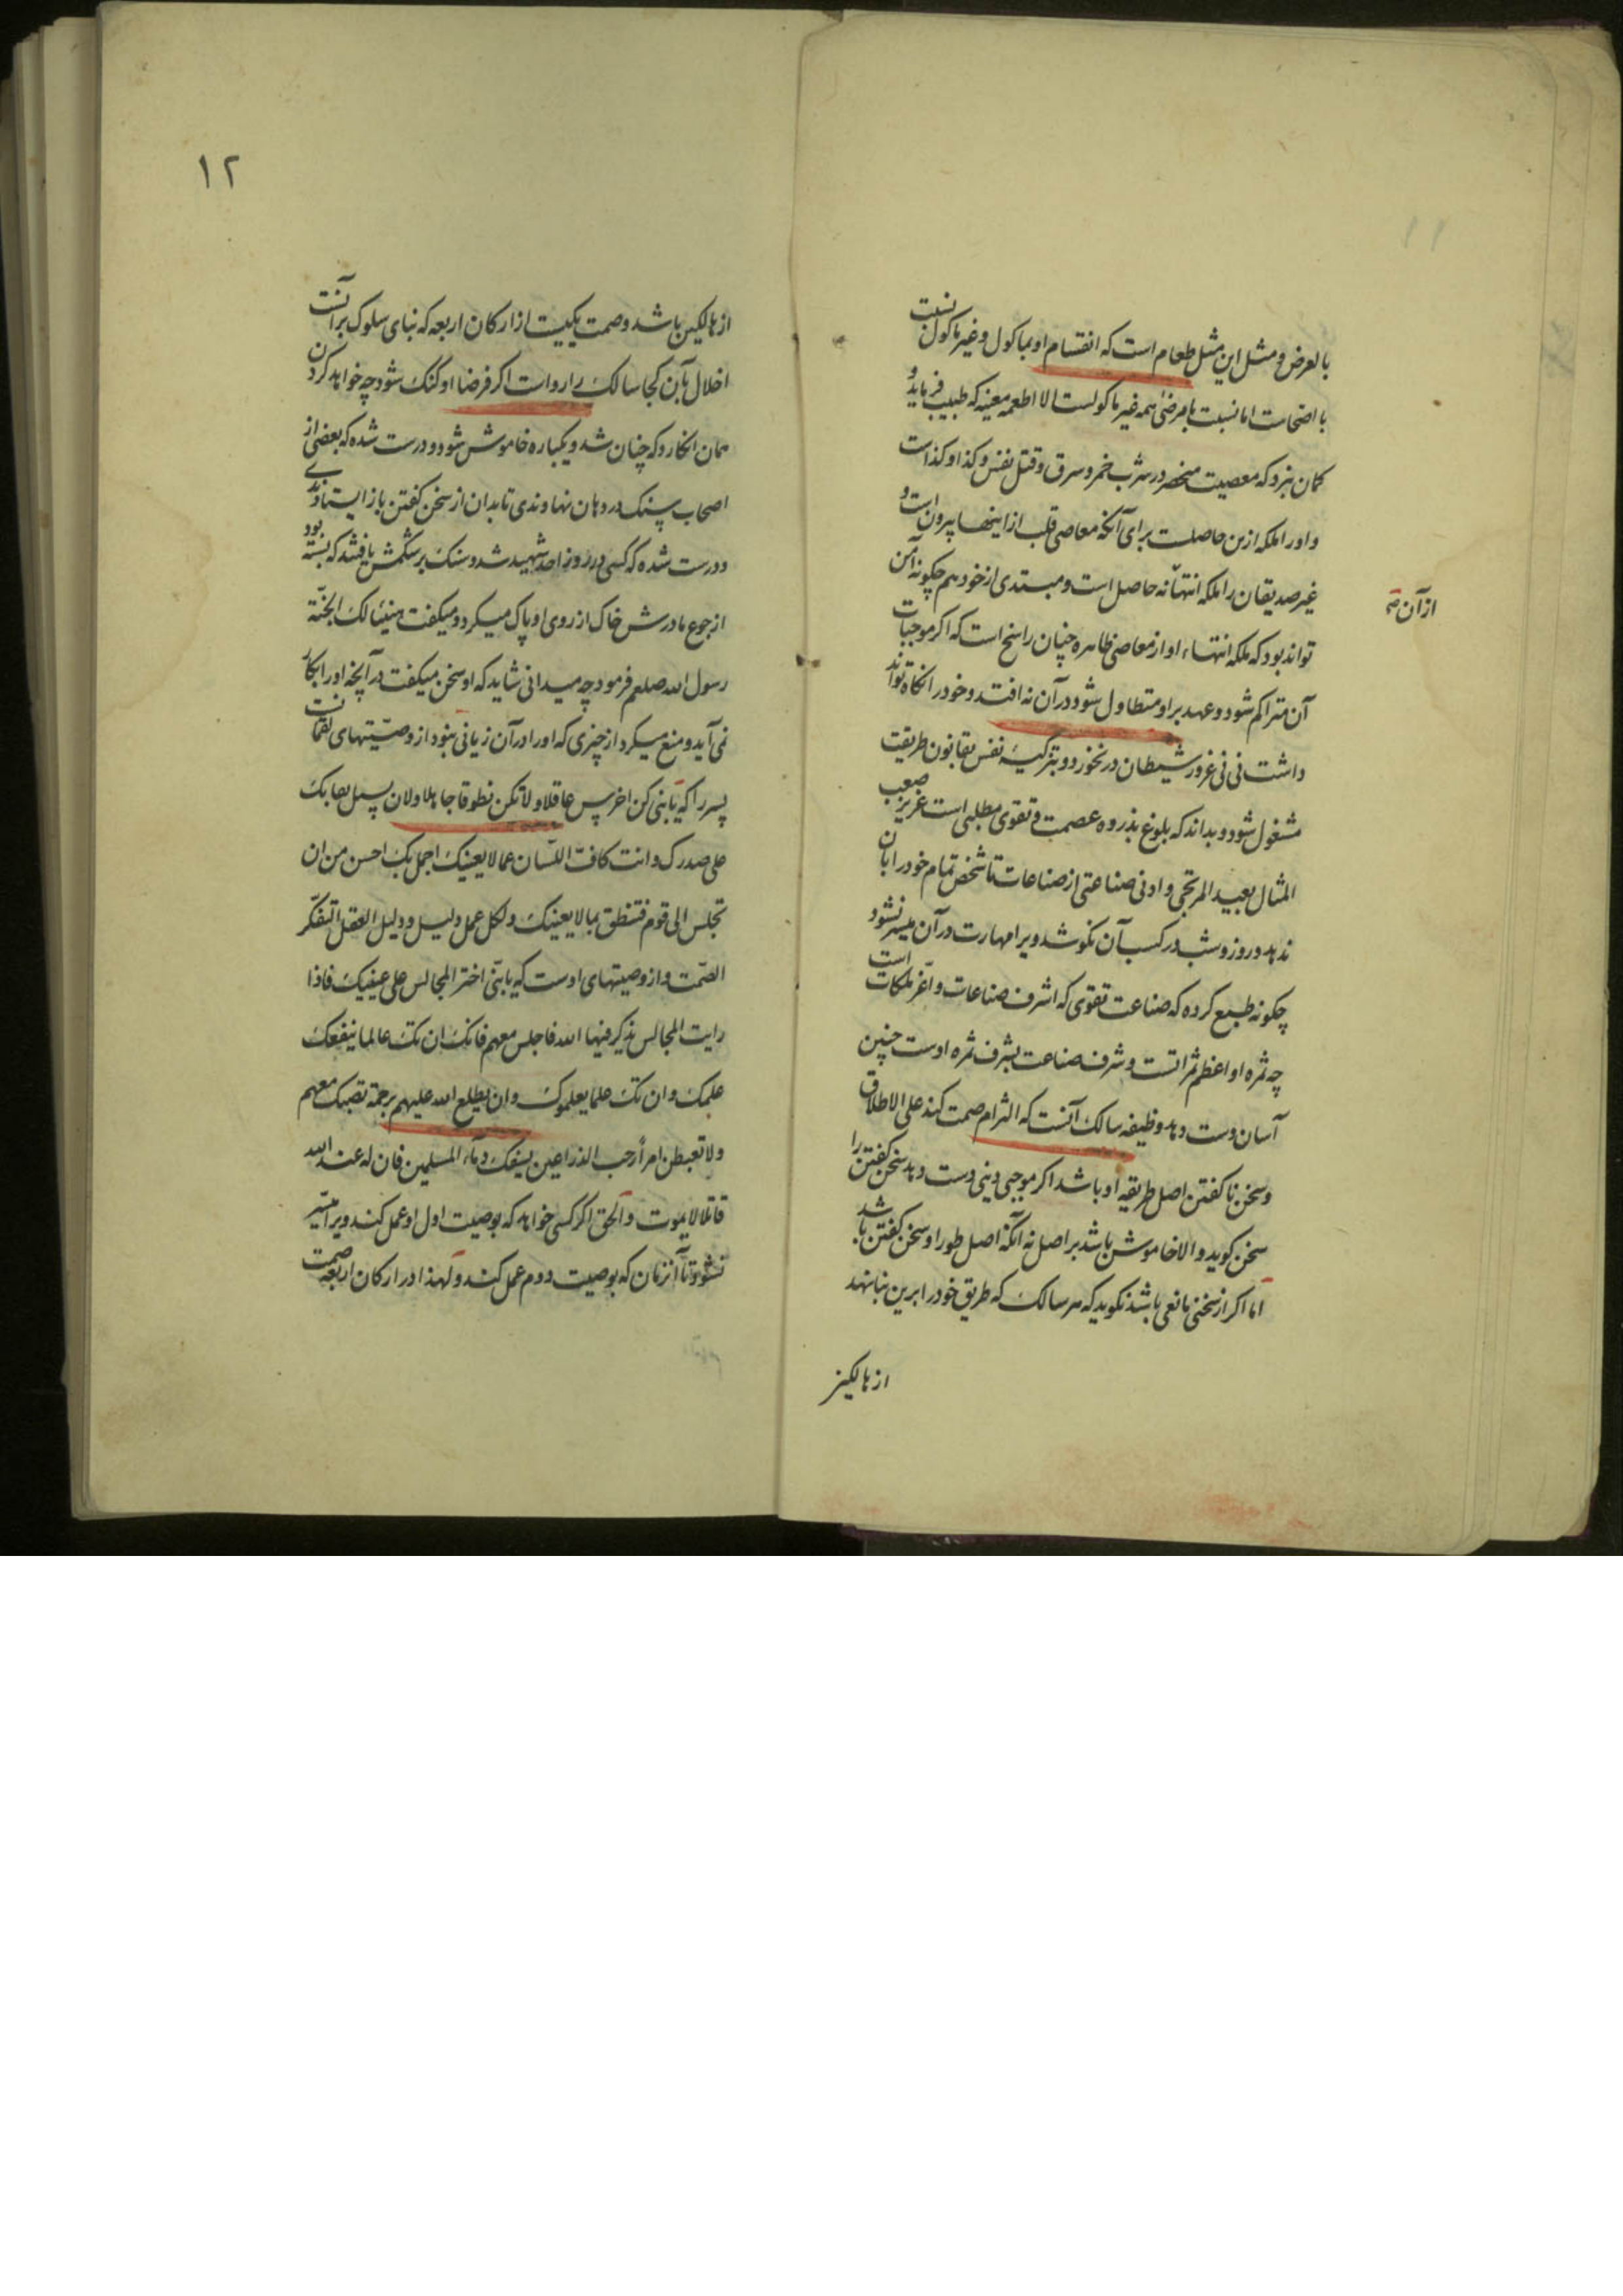 بالعرض و مثل این مثل طعام است که انقسام او بماکول و غیر ماکول نسبت
با اصحاست اما نسبت بامرضی همه غیر ماکولست الا اطعمه معینه که طبیب فرماید و
کمان نبرد که معصیت منحصر در شرب خمر و سرق و قتل نفس و کذا و کذاست
و اورا ملکه ازین حاصلست برای آنکه معاصی قلب از اینها بیرون است و
غیر صدیقان را ملکه انتهآنه حاصل است و مبتدی از خود هم چکونه آمن
از آن صح
تواند بود که ملکه انتهاء او از معاصی ظاهره چنان راسخ است که اکر موجبات
آن متراکم شود و عهد بر او متطاول شود در آن نه افتد و خود را نکاه تواند
داشت نی نی غرور شیطان در نخورد و بتزکیهٔ نفس بقانون طریقت
مشغول شود و بداند که بلوغ بذروه عصمت و تقوی مطلبی است غریز صعب
المثال بعید المرتجی و ادنی صناعتی از صناعات تا شخص تمام خود را بآن
ندهد و روز و شب در کسب آن نکوشد ویرا مهارت در آن میسر نشود
چکونه طمع کرده که صناعت تقوی که اشرف صناعات و اعز ملکات است
چه ثمره او اعظم ثمراتست و شرف صناعت بشرف ثمره اوست چنین
آسان دست دهد وظیفه سالک آنست که التزام صمت کند علی الاطلاق
و سخن نا کفتن اصل طریقه او باشد اکر موجبی دینی دست دهد سخن کفتن را
سخن کوید و الا خاموش باشد بر اصل نه آنکه اصل طور او سخن کفتن باشد
اما اکر از سخنی مانعی باشد نکوید که هر سالک که طریق خود را برین بنا نهد
از هالکین
١٢
از هالکین باشد و صمت یکیست از ارکان اربعه که بنای سلوک بر آنست
اخلال بآن کجا سالک را رواست اکر فرضا او کنک شود چه خواهد کردن
همان انکارد که چنان شد و یکباره خاموش شود و درست شده که بعضی از
اصحاب سنک در دهان نهاوندی تا بدان از سخن کفتن باز ایستادندی
و درست شده که کسی در روز احد شهید شد و سنک بر شکمش یافتند که بسته بود
از جوع مادرش خاک از روی او پاک میکرد و میکفت هنیئا لک الجنّة
رسول الله صلعم فرمود چه میدانی شاید که او سخن میکفت در آنچه او را بکار
نمی آید و منع میکرد از چیزی که او را در آن زیانی نبود از وصیّتهای لقمانست
پسر را که یا بنی کن اخرس عاقلا و لا تکن نطوقا جاهلا و لان یسیل لعابک
علی صدرک و انت کافّ اللّسان عما لا یعنیک اجمل بک احسن من ان
تجلس الی قوم فتنطق بما لا یعنیک و لکل عمل دلیل و دلیل العقل التفکّر
الصّمت و از وصیتهای اوست که یا بنّی اختر المجالس علی عینیک فاذا
رایت المجالس یذکر فیها الله فاجلس معهم فانک ان تک عالما ینفعک
علمک و ان تک علما یعلموک و ان یطلع الله علیهم برحمة تصبک معهم
و لا تغبطن امرأ رحب الذراعین یسفک دمآء المسلمین فان له عند الله
قاتلا لا یموت و الحق اکر کسی خواهد که بوصیت اول او عمل کند ویرا میّسر
نشود تا آنزمان که بوصیت دوم عمل کند و لهذا در ارکان اربعه صمت